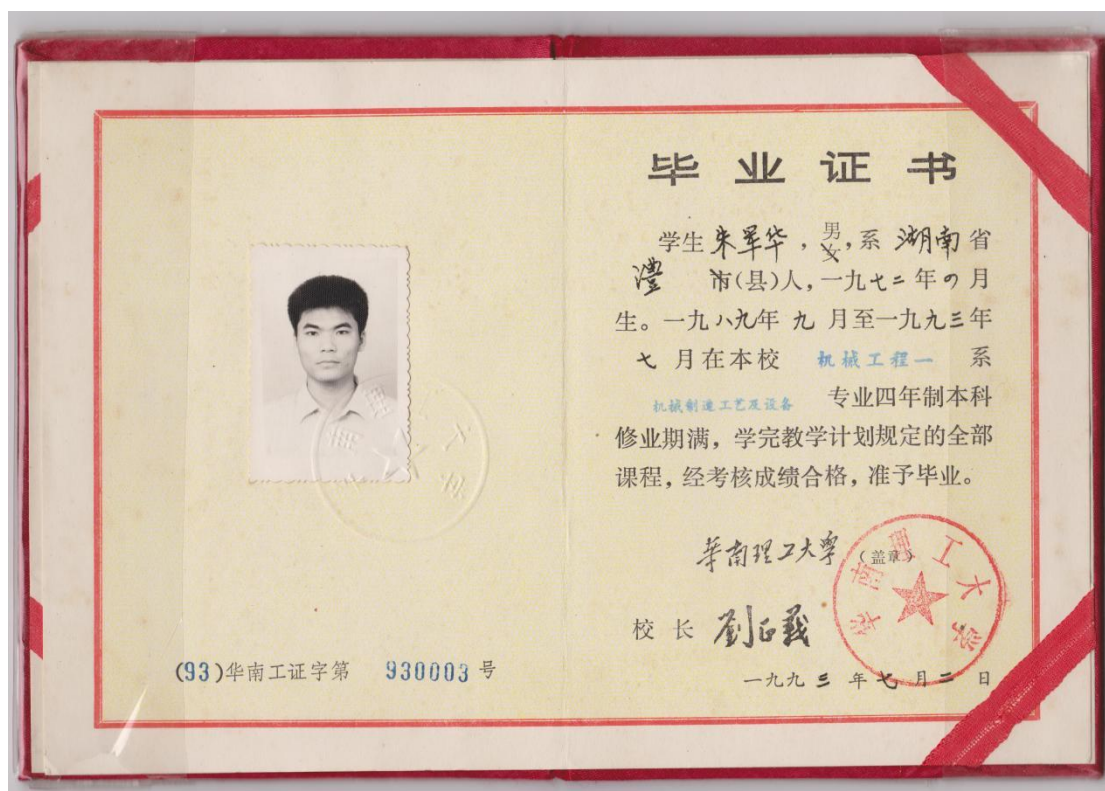 毕业证书
学生朱军华，男女，系湖南省
澧市(县)人，一九七二年 月
生。一九八九年九月至一九九三年
七月在本校 机械工程一 系
机械制造工艺及设备 专业四年制本科
修业期满，学完教学计划规定的全部
课程，经考核成绩合格，准予毕业。
华南理工大学（盖章）
华南理工大学
校长 劉正義
一九九三年七月二日
(93)华南工证字第 930003 号